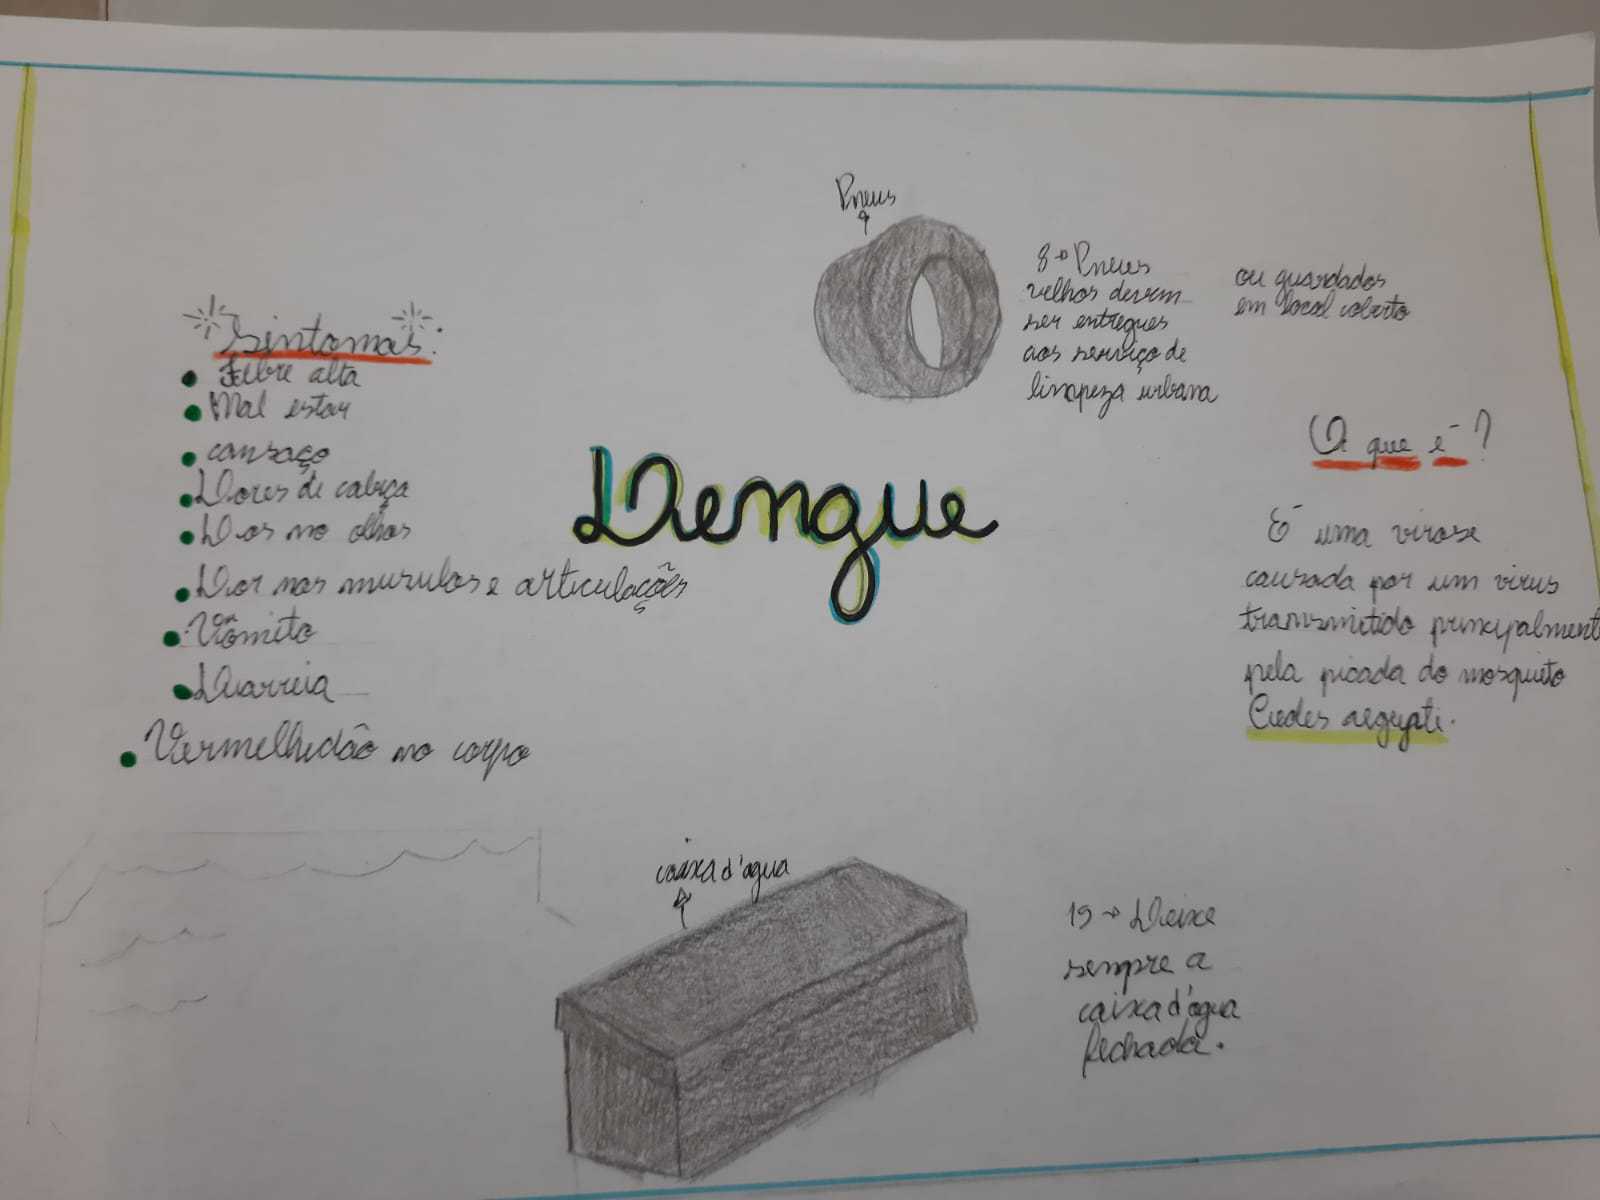 Pneus
8→Pneus
velhos devem
ser entregues
aos serviço de
limpeza urbana
ou guardados
em local coberto
Sintomas:
Febre alta
Mal estar
cansaço
Dores de cabeça
Dos no olhos
Dor nos musculos e articulações
Vômito
Diarreia
Vermelhidão no corpo
Dengue
O que é?
É uma virose
causada por um virus
transmitido principalment
pela picada do mosquito
aegypti.
caixa d'água
→ Deixe
sempre a
caixa d'água
fechada.